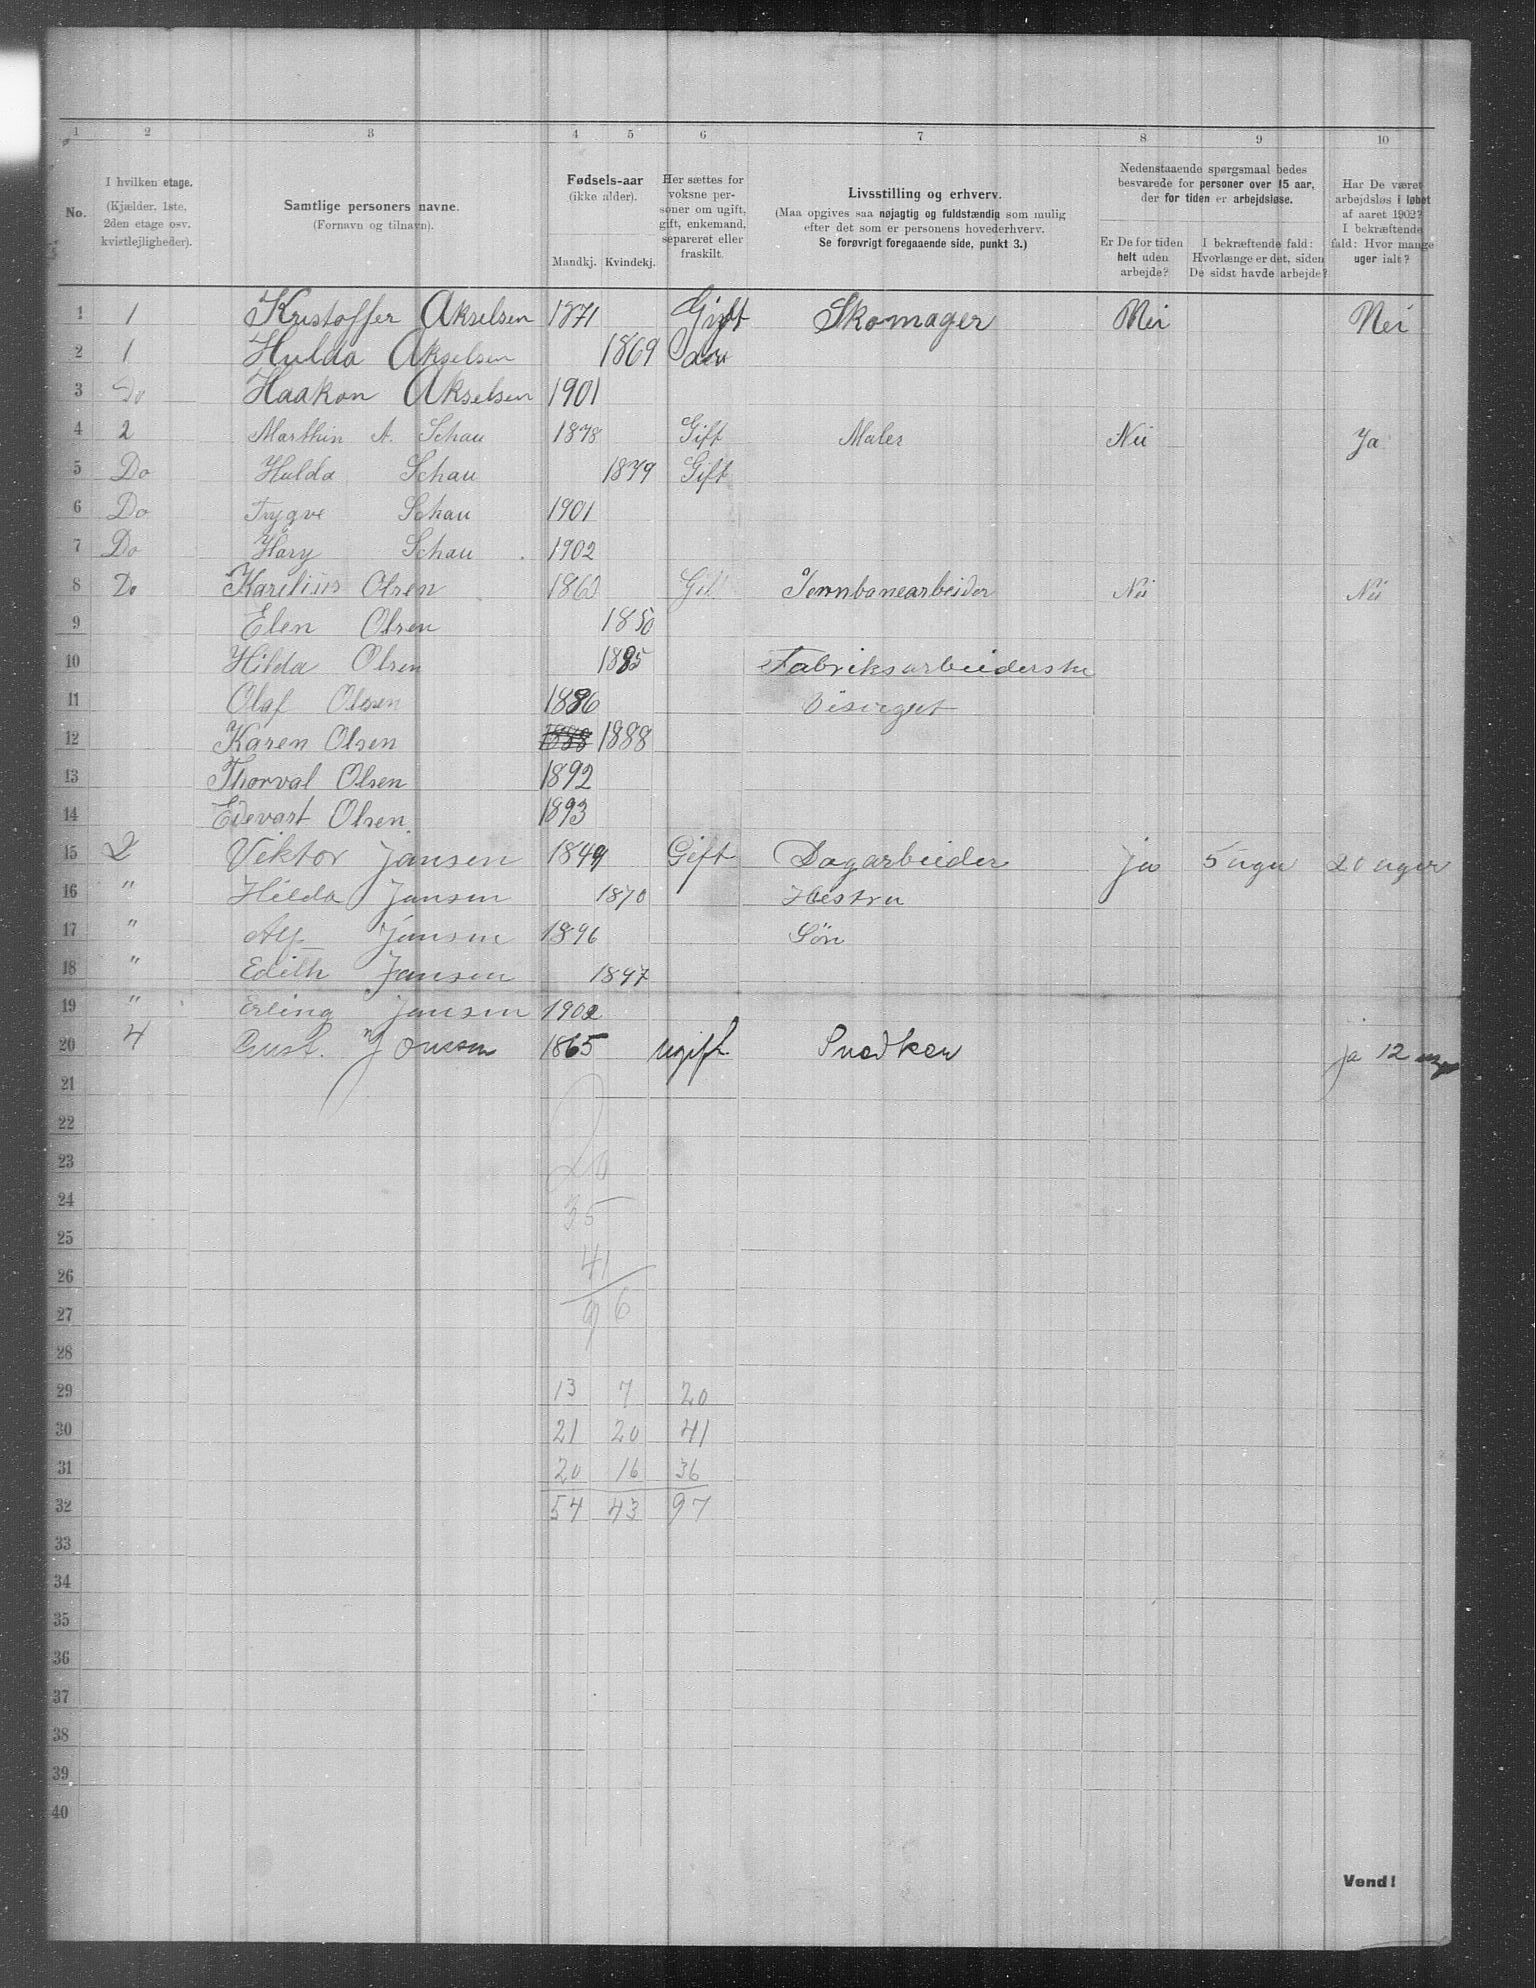 1 2 3 4 5 6 7 8 9 10
No.
I hvilken etage.
(Kjælder, 1ste, 2den etage osv. kvistlejligheder).
Samtlige personers navne.
(Fornavn og tilnavn).
Fødsels-aar
(ikke alder).
Mandkj. Kvindekj.
Her sættes for voksne personer om ugift, gift, enkemand, separeret eller fraskilt.
Livsstilling og erhverv.
(Maa opgives saa nøjagtig og fuldstændig som mulig
efter det som er personens hovederhverv.
Se forøvrigt foregaaende side, punkt 3.)
Nedenstaaende spørgsmaal bedes
besvarede for personer over 15 aar,
der for tiden er arbejdsløse.
Er De for tiden helt uden arbejde?
I bekræftende fald: Hvorlænge er det, siden De sidst havde arbejde?
Har De været arbejdsløs i løbet af aaret 1902? I bekræftende fald: Hvor mange uger ialt?
1 1 Kristoffer Akselsen 1871 Gift Skomager Nei Nei
2 1 Hulda Akselsen 1869 do
3 Do Haakon Akselsen 1901
4 2 Marthin A. Schau 1878 Gift Maler Nei Ja
5 Do Hulda Schau 1879 Gift
6 Do Trygve Schau 1901
7 Do Hary Schau 1902
8 Do Karelius Olsen 186 Gift Jernbanearbeider Nei Nei
9 Elen Olsen 1850
10 Hilda Olsen 1885 Fabriksarbeiderske
11 Olaf Olsen 1886 Visergut
12 Karen Olsen 1888 1888
13 Thorval Olsen 1892
14 Edevart Olsen 1893
15 2 Viktor Jansen 1849 Gift Dagarbeider ja 5 uger 20 uger
16 " Hilda Jansen 1870 Hustru
17 " Alf Jansen 1896 Sön
18 " Edith Jansen 1897
19 " Erling Jansen 1902
20 4 Gust. Jonsson 1865 ugift Snedker ja 12 uger
21
22
23 20
24 35
25
26 41
27 96
28
29 13 7 20
30 21 20 41
31 20 16 36
32 54 43 97
33
34
35
36
37
38
39
40
Vend!